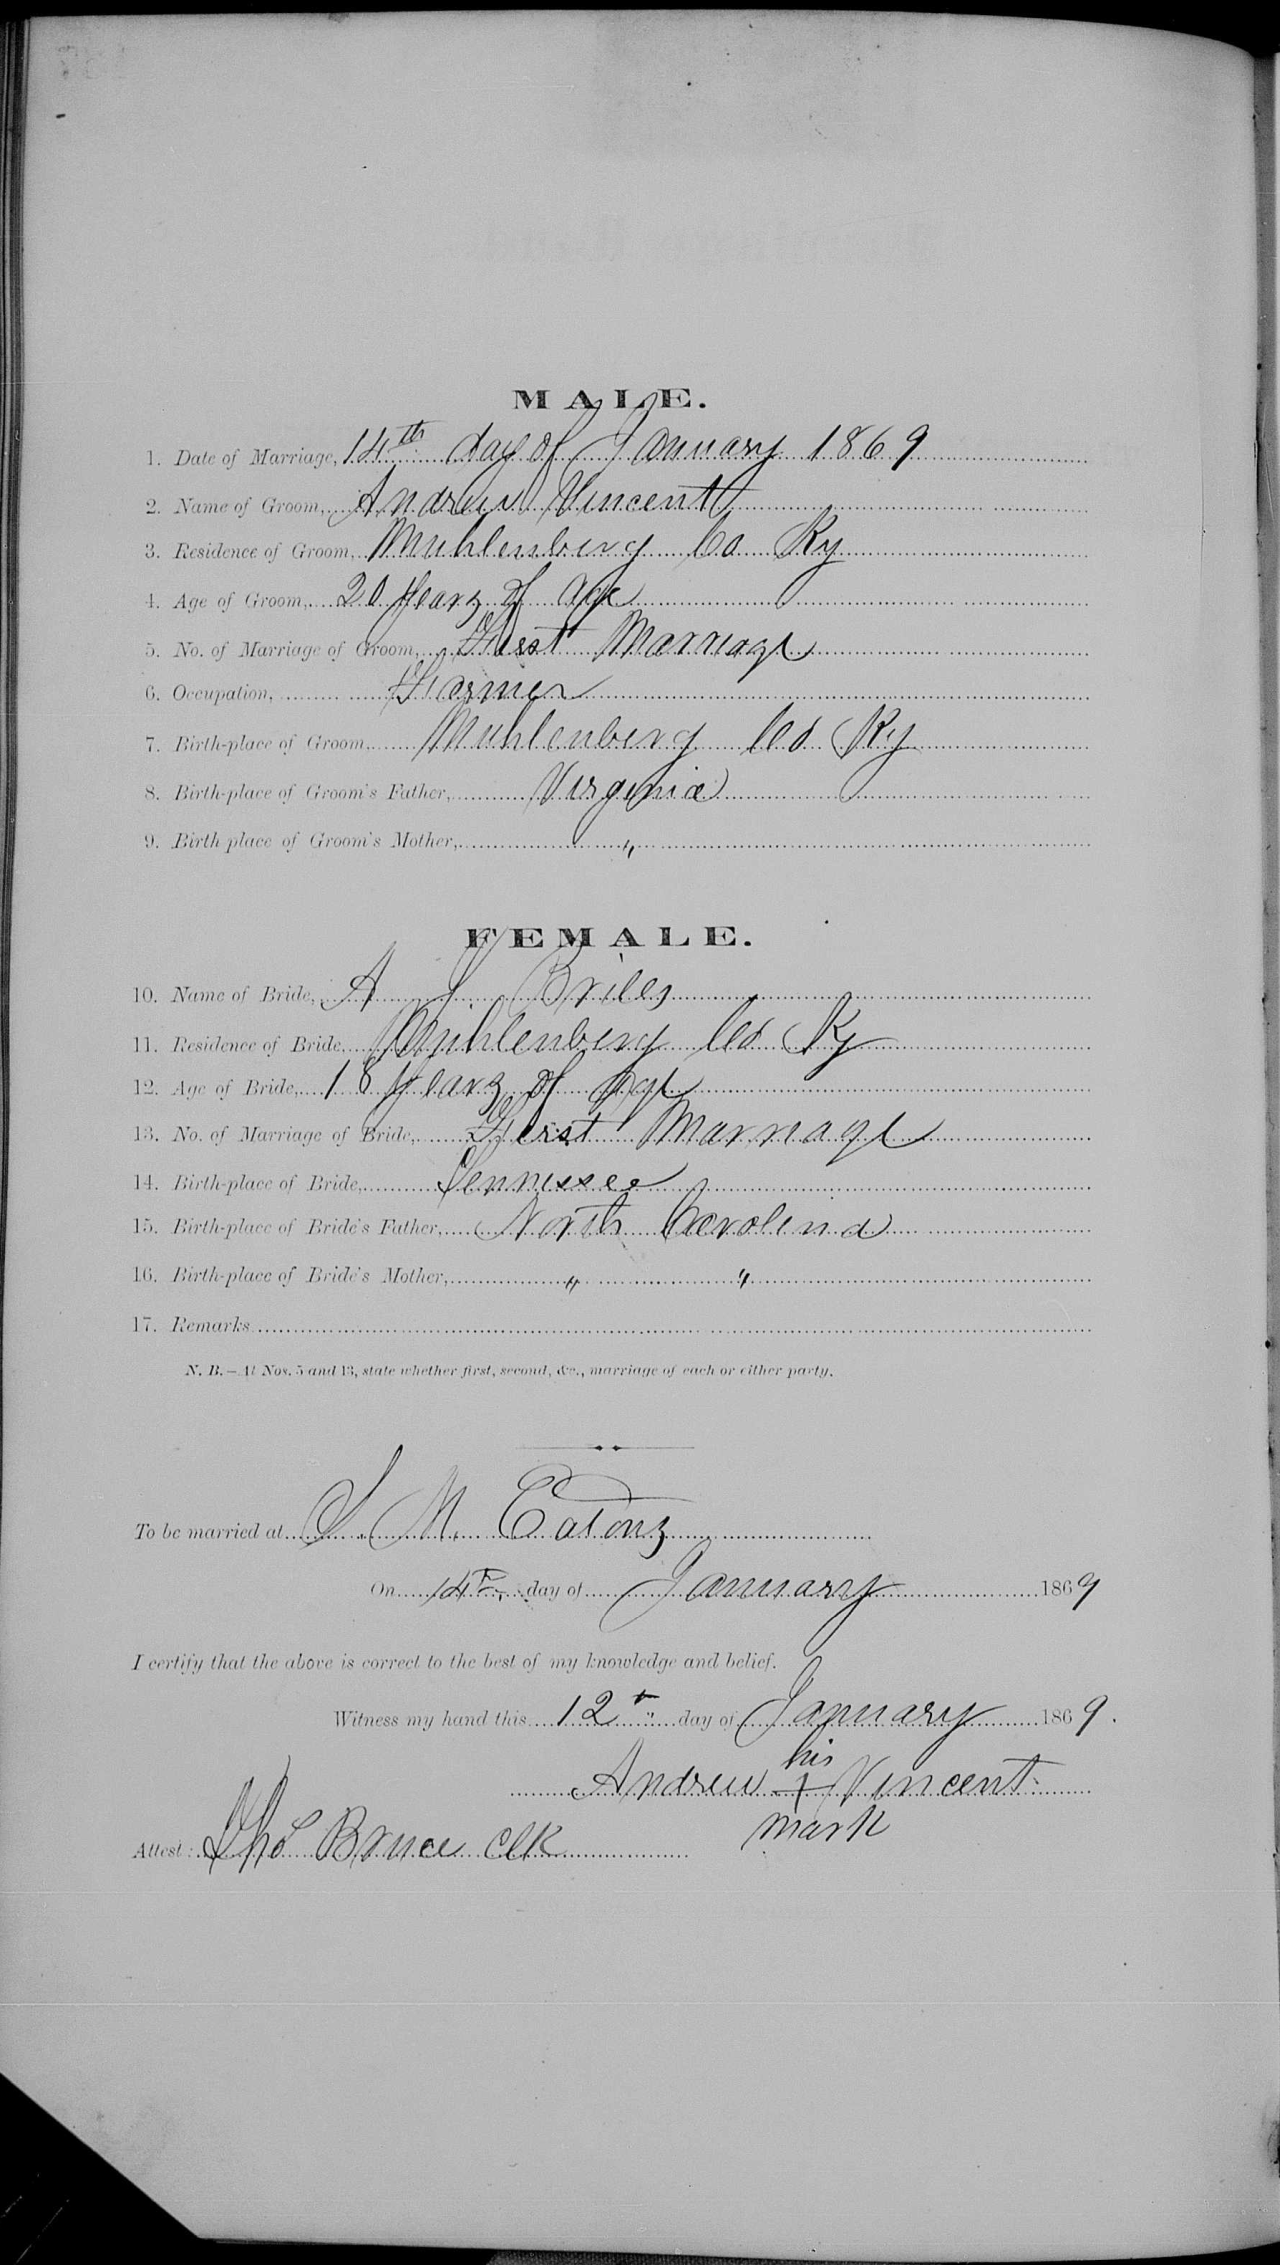 MALE.
1. Date of Marriage, 14th day of January 1869
2. Name of Groom, Andrew Vincent
3. Residence of Groom, Muhlenberg Co Ky
4. Age of Groom, 20 years of age
5. No. of Marriage of Groom, First Marriage
6. Occupation, Farmer
7. Birth-place of Groom, Muhlenberg Co Ky
8. Birth-place of Groom's Father, Virginia
9. Birth-place of Groom's Mother, "
FEMALE.
10. Name of Bride, A J Briles
11. Residence of Bride, Muhlenberg Co Ky
12. Age of Bride, 18 years of age
13. No. of Marriage of Bride, First Marriage
14. Birth-place of Bride, Tennessee
15. Birth-place of Bride's Father, North Carolina
16. Birth-place of Bride's Mother, " "
17. Remarks
N. B.—At Nos. 5 and 13, state whether first, second, &c., marriage of each or either party.
To be married at S. M. Eatons
On 14th day of January 1869
I certify that the above is correct to the best of my knowledge and belief.
Witness my hand this 12th day of January 1869.
his
Andrew + Vincent
mark
Attest: Tho Bruce clk